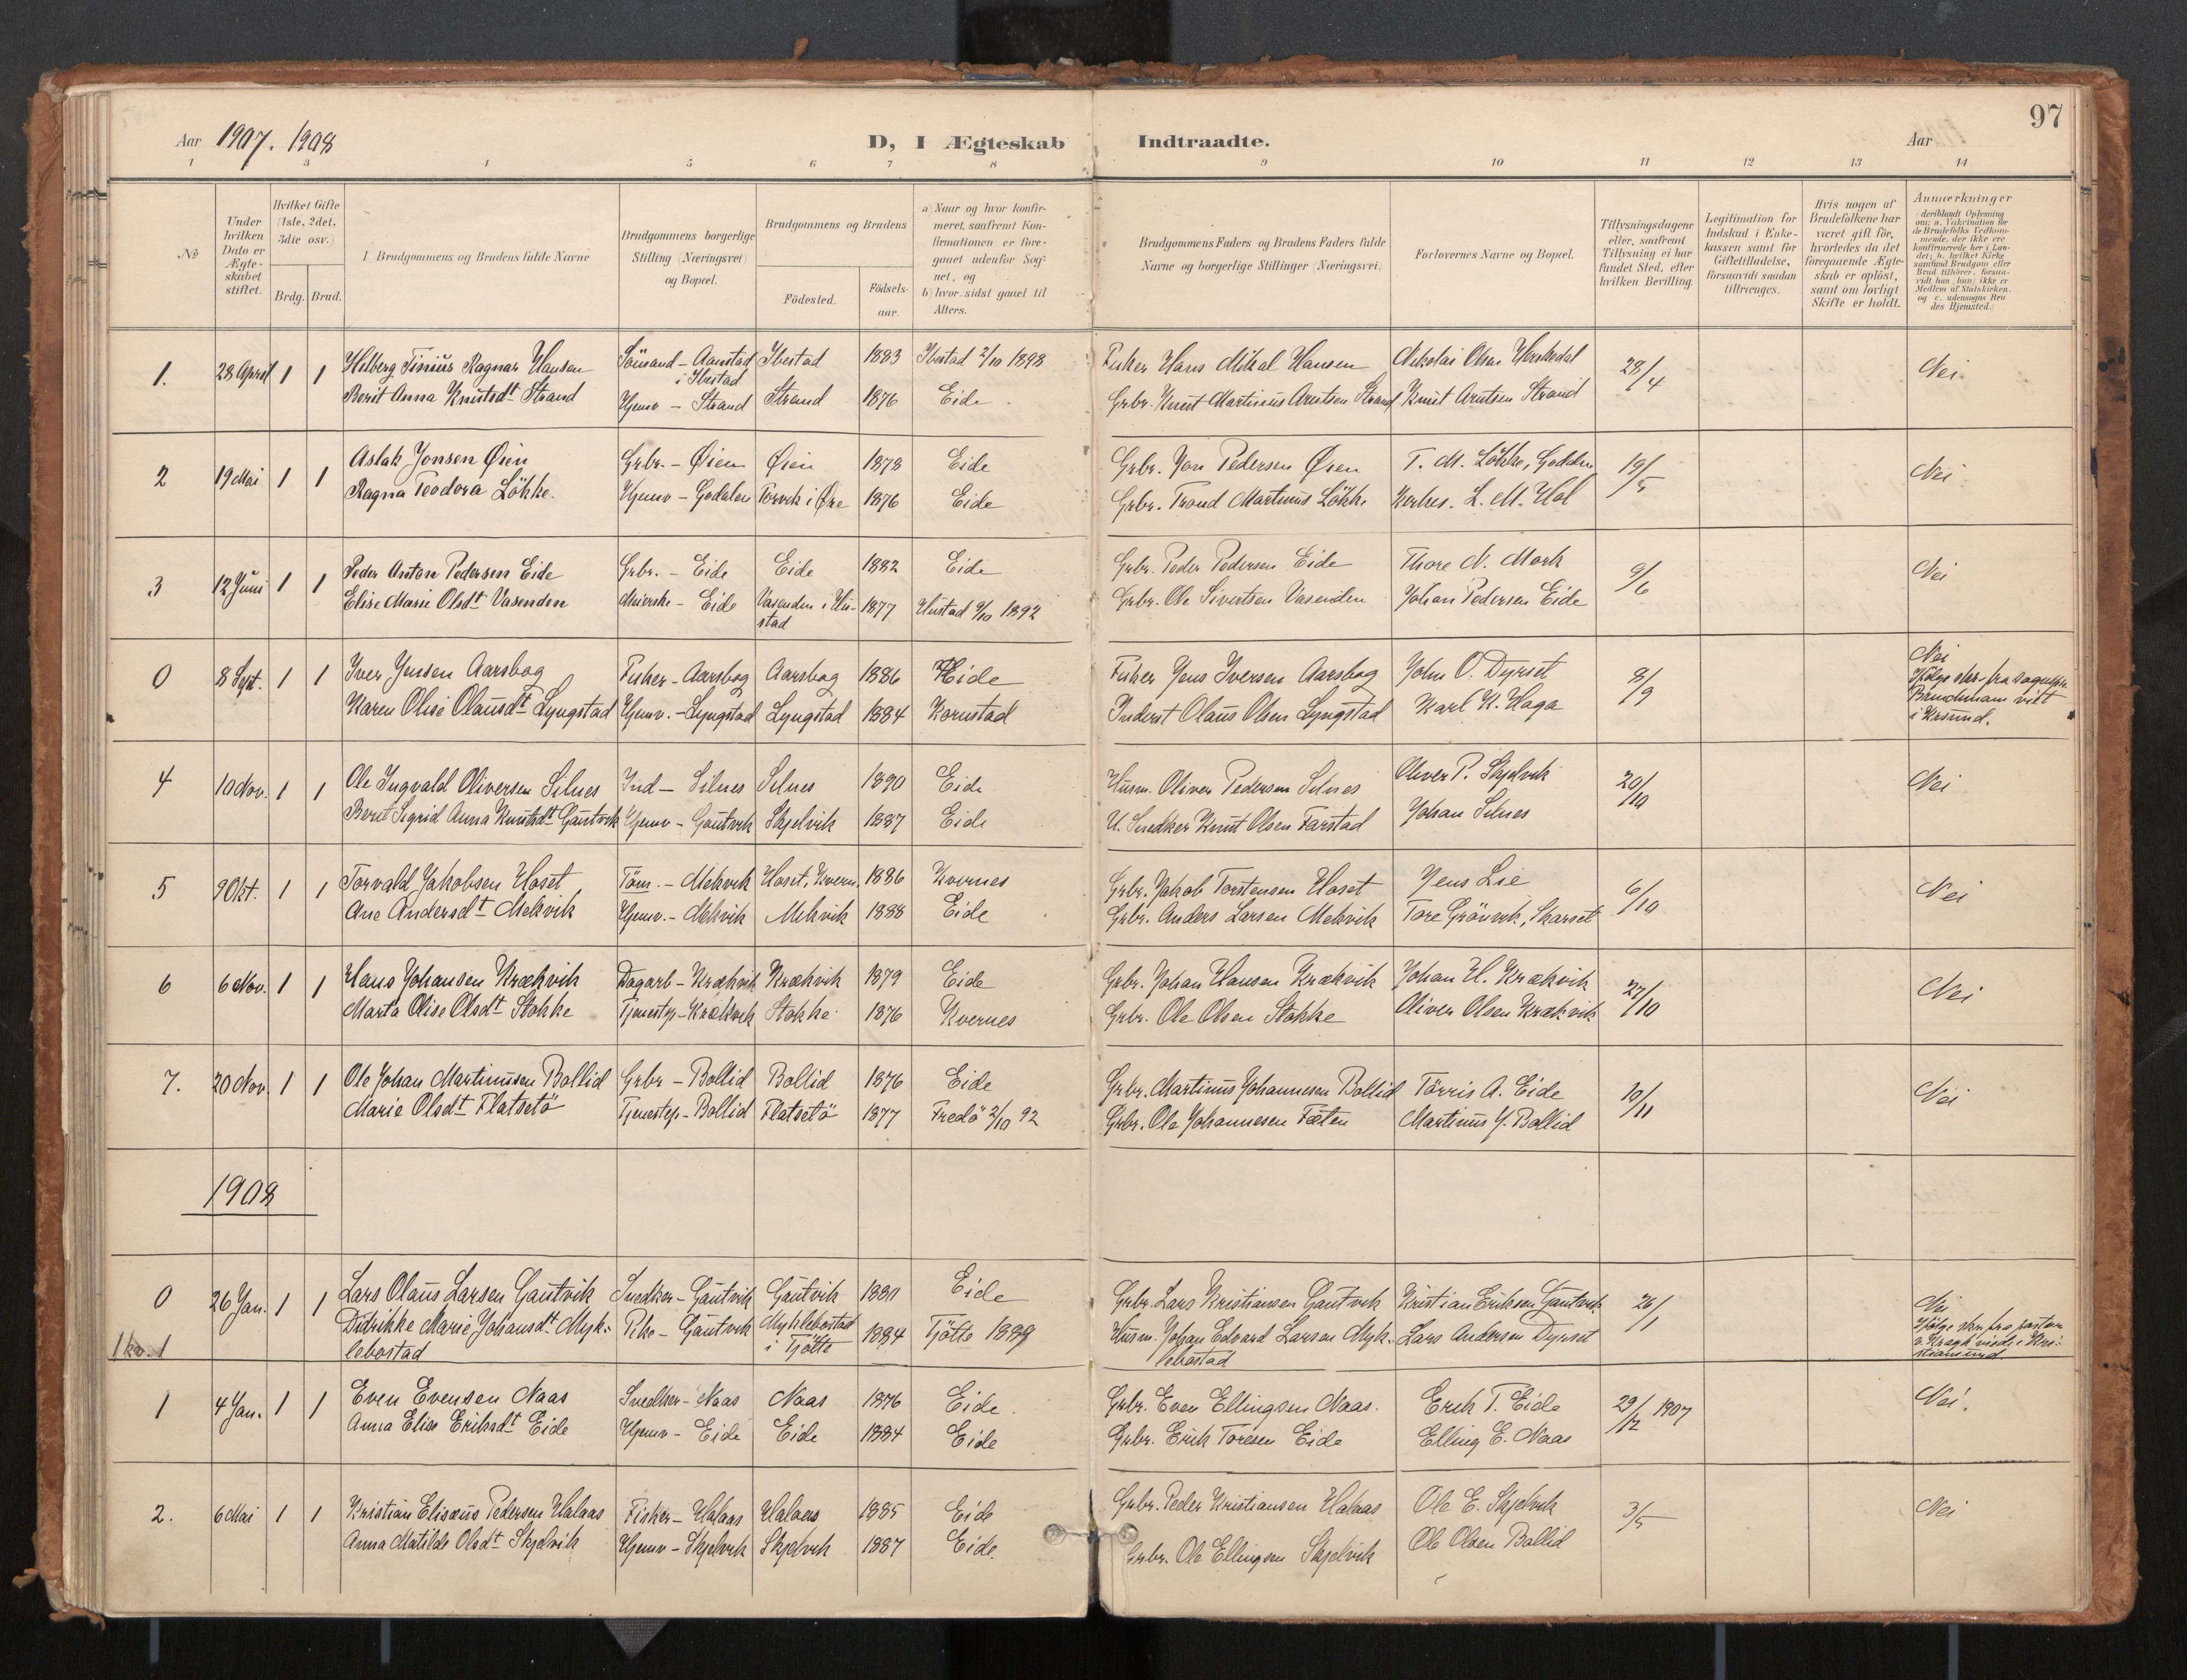 97
Aar 1907. 1908
D, I Ægteskab Indtraadte.
Aar
1 3 4 5 6 7 8 9 10 11 12 13 14
No
Under hvilken Dato er Ægteskabet stiftet.
Hvilket Gifte (1ste, 2det, 3die osv.)
Brdg. Brud.
Brudgommens og Brudens fulde Navne
Brudgommens borgerlige Stilling (Næringsvei) og Bopæl.
Brudgommens og Brudens
Födested.
Födselsaar.
a) Naar og hvor konfirmeret, saafremt Konfirmationen er foregaaet udenfor Sognet, og
b) hvor sidst gaaet til Alters.
Brudgommens Faders og Brudens Faders fulde Navne og borgerlige Stillinger (Næringsvei)
Forlovernes Navne og Bopæl.
Tillysningsdagene eller, saafremt Tillysning ei har fundet Sted, efter hvilken Bevilling.
Legitimation for Indskud i Enkekassen samt for Giftetilladelse, forsaavidt saadan tiltrænges.
Hvis nogen af Brudefolkene har været gift før, hvorledes da det foregaaende Ægteskab er oplöst, samt om lovligt Skifte er holdt.
Anmærkninger
(deriblandt Oplysning om: a. Vakcination for de Brudefolks Vedkommende, der ikke ere konfirmerede her i Landet; b. hvilket Kirkesamfund Brudgom eller Brud tilhörer, forsaavidt han (hun) ikke er Medlem af Statskirken. og c. udensogns Brudes Hjemsted.)
1. 28 April 1 1 Hilberg Tinius Ragnar Hansen Aanstad Ibestad 1883 Ibestad 2/10 1898 Fisker Hans Mikal Hansen Nikolai Olsen 28/4 Nei
i Ibestad
Berit Anna Knutsdt Strand Hjemv - Strand Strand 1876 Eide Grbr. Knut Martinus Arntsen Strand Knut Arntsen Strand
2 19 Mai 1 1 Aslak Jonsen Øien Grbr. - Øien Øien 1878 Eide Grbr. Jon Pedersen Øien T. M. Lökke, 19/5 Nei
Ragna Teodora Lökke. Hjemv - Godalen Torvik i Øre 1876 Eide Grbr. Trond Martinus Lökke L. M. Hol
3 12 Juni 1 1 Peder Anton Pedersen Eide Grbr. - Eide Eide 1882 Eide Grbr. Peder Pedersen Eide Thore N. Mork 9/6 Nei
Elise Marie Olsdt Vasenden Meierske - Eide Vasenden i Hu- 1877 Hustad 9/10 1892 Grbr. Ole Sivertsen Vasenden Johan Pedersen Eide
stad
0 8 Sept. 1 1 Iver Jensen Aarsbog Fisker - Aarsbog Aarsbog 1886 Eide Fisker Jens Iversen Aarsbog John O. Dyrset 8/9 Nei
Ifölge skr. fra sognepr.
Karen Olise Olausdt Lyngstad Hjemv. - Lyngstad Lyngstad 1884 Kornstad Inderst Olaus Olsen Lyngstad Karl K. Haga
Bruchmann viet
i Krsund.
4 10 Nov. 1 1 Ole Ingvald Oliversen Silnes Ind - Silnes Silnes 1890 Eide Husm. Oliver Pedersen Silnes Oliver P. Skjelvik 20/10 Nei
Berit Sigrid Anna Knutsdt Gautvik Hjemv - Gautvik Skjelvik 1887 Eide U. Snedker Knut Olsen Farstad Johan Silnes
5 9 Okt. 1 1 Torvald Jakobsen Hoset Töm. - Mekvik Hoset, Kvern. 1886 Kvernes Grbr. Jakob Torstensen Hoset Jens Lie 6/10 Nei
Ane Andersdt Mekvik Hjemv. - Mekvik Mekvik 1888 Eide Grbr. Anders Larsen Mekvik Tore Grönvik, Skarset
6 6 Nov. 1 1 Hans Johansen Krækvik Dagarb - Krækvik Krækvik 1879 Eide Grbr. Johan Hansen Krækvik Johan H. Krækvik 27/10 Nei
Marta Olise Olsdt Stokke Tjenestep - Krækvik Stokke 1876 Kvernes Grbr. Ole Olsen Stokke Oliver Olsen Krækvik
7. 20 Nov. 1 1 Ole Johan Martinusen Bollid Grbr - Bollid Bollid 1876 Eide Grbr. Martinus Johannesen Bollid Törris A. Eide 10/11 Nei
Marie Olsdt Flatsetö Tjenestep - Bollid Flatsetö 1877 Fredö 2/10 92 Grbr. Ole Johannesen Fæten Martinus J. Bollid
1908
0 26 Jan. 1 1 Lars Olaus Larsen Gautvik Snedker - Gautvik Gautvik 1880 Eide Grbr. Lars Kristiansen Gautvik Kristian Eriksen Gautvik 26/1 Nei
Ifölge skr. fra pastor
Didrikke Marie Johansdt Myk- Pike - Gautvik Myklebostad 1884 Tjötte 1899 Husm. Johan Edvard Larsen Myk- Lars Andersen Dyrset
lebostad i Tjötte lebostad
v. Kragh viede i Kri-
stiansund.
1 4 Jan. 1 1 Even Evensen Naas Snedker - Naas Naas 1876 Eide Grbr. Even Ellingsen Naas. Erik T. Eide 29/12 1907 Nei.
Anna Elise Eriksdt Eide Hjemv - Eide Eide 1884 Eide Grbr. Erik Toresen Eide Elling E. Naas
2. 6 Mai 1 1 Kristian Elisæus Pedersen Halaas Fisker - Halaas Halaas 1885 Eide Grbr. Peder Kristiansen Halaas Ole E. Skjelvik 3/5 Nei
Anna Matilde Olsdt Skjelvik Hjemv - Skjelvik Skjelvik 1887 Eide. Grbr. Ole Ellingsen Skjelvik Ole Olsen Bollid